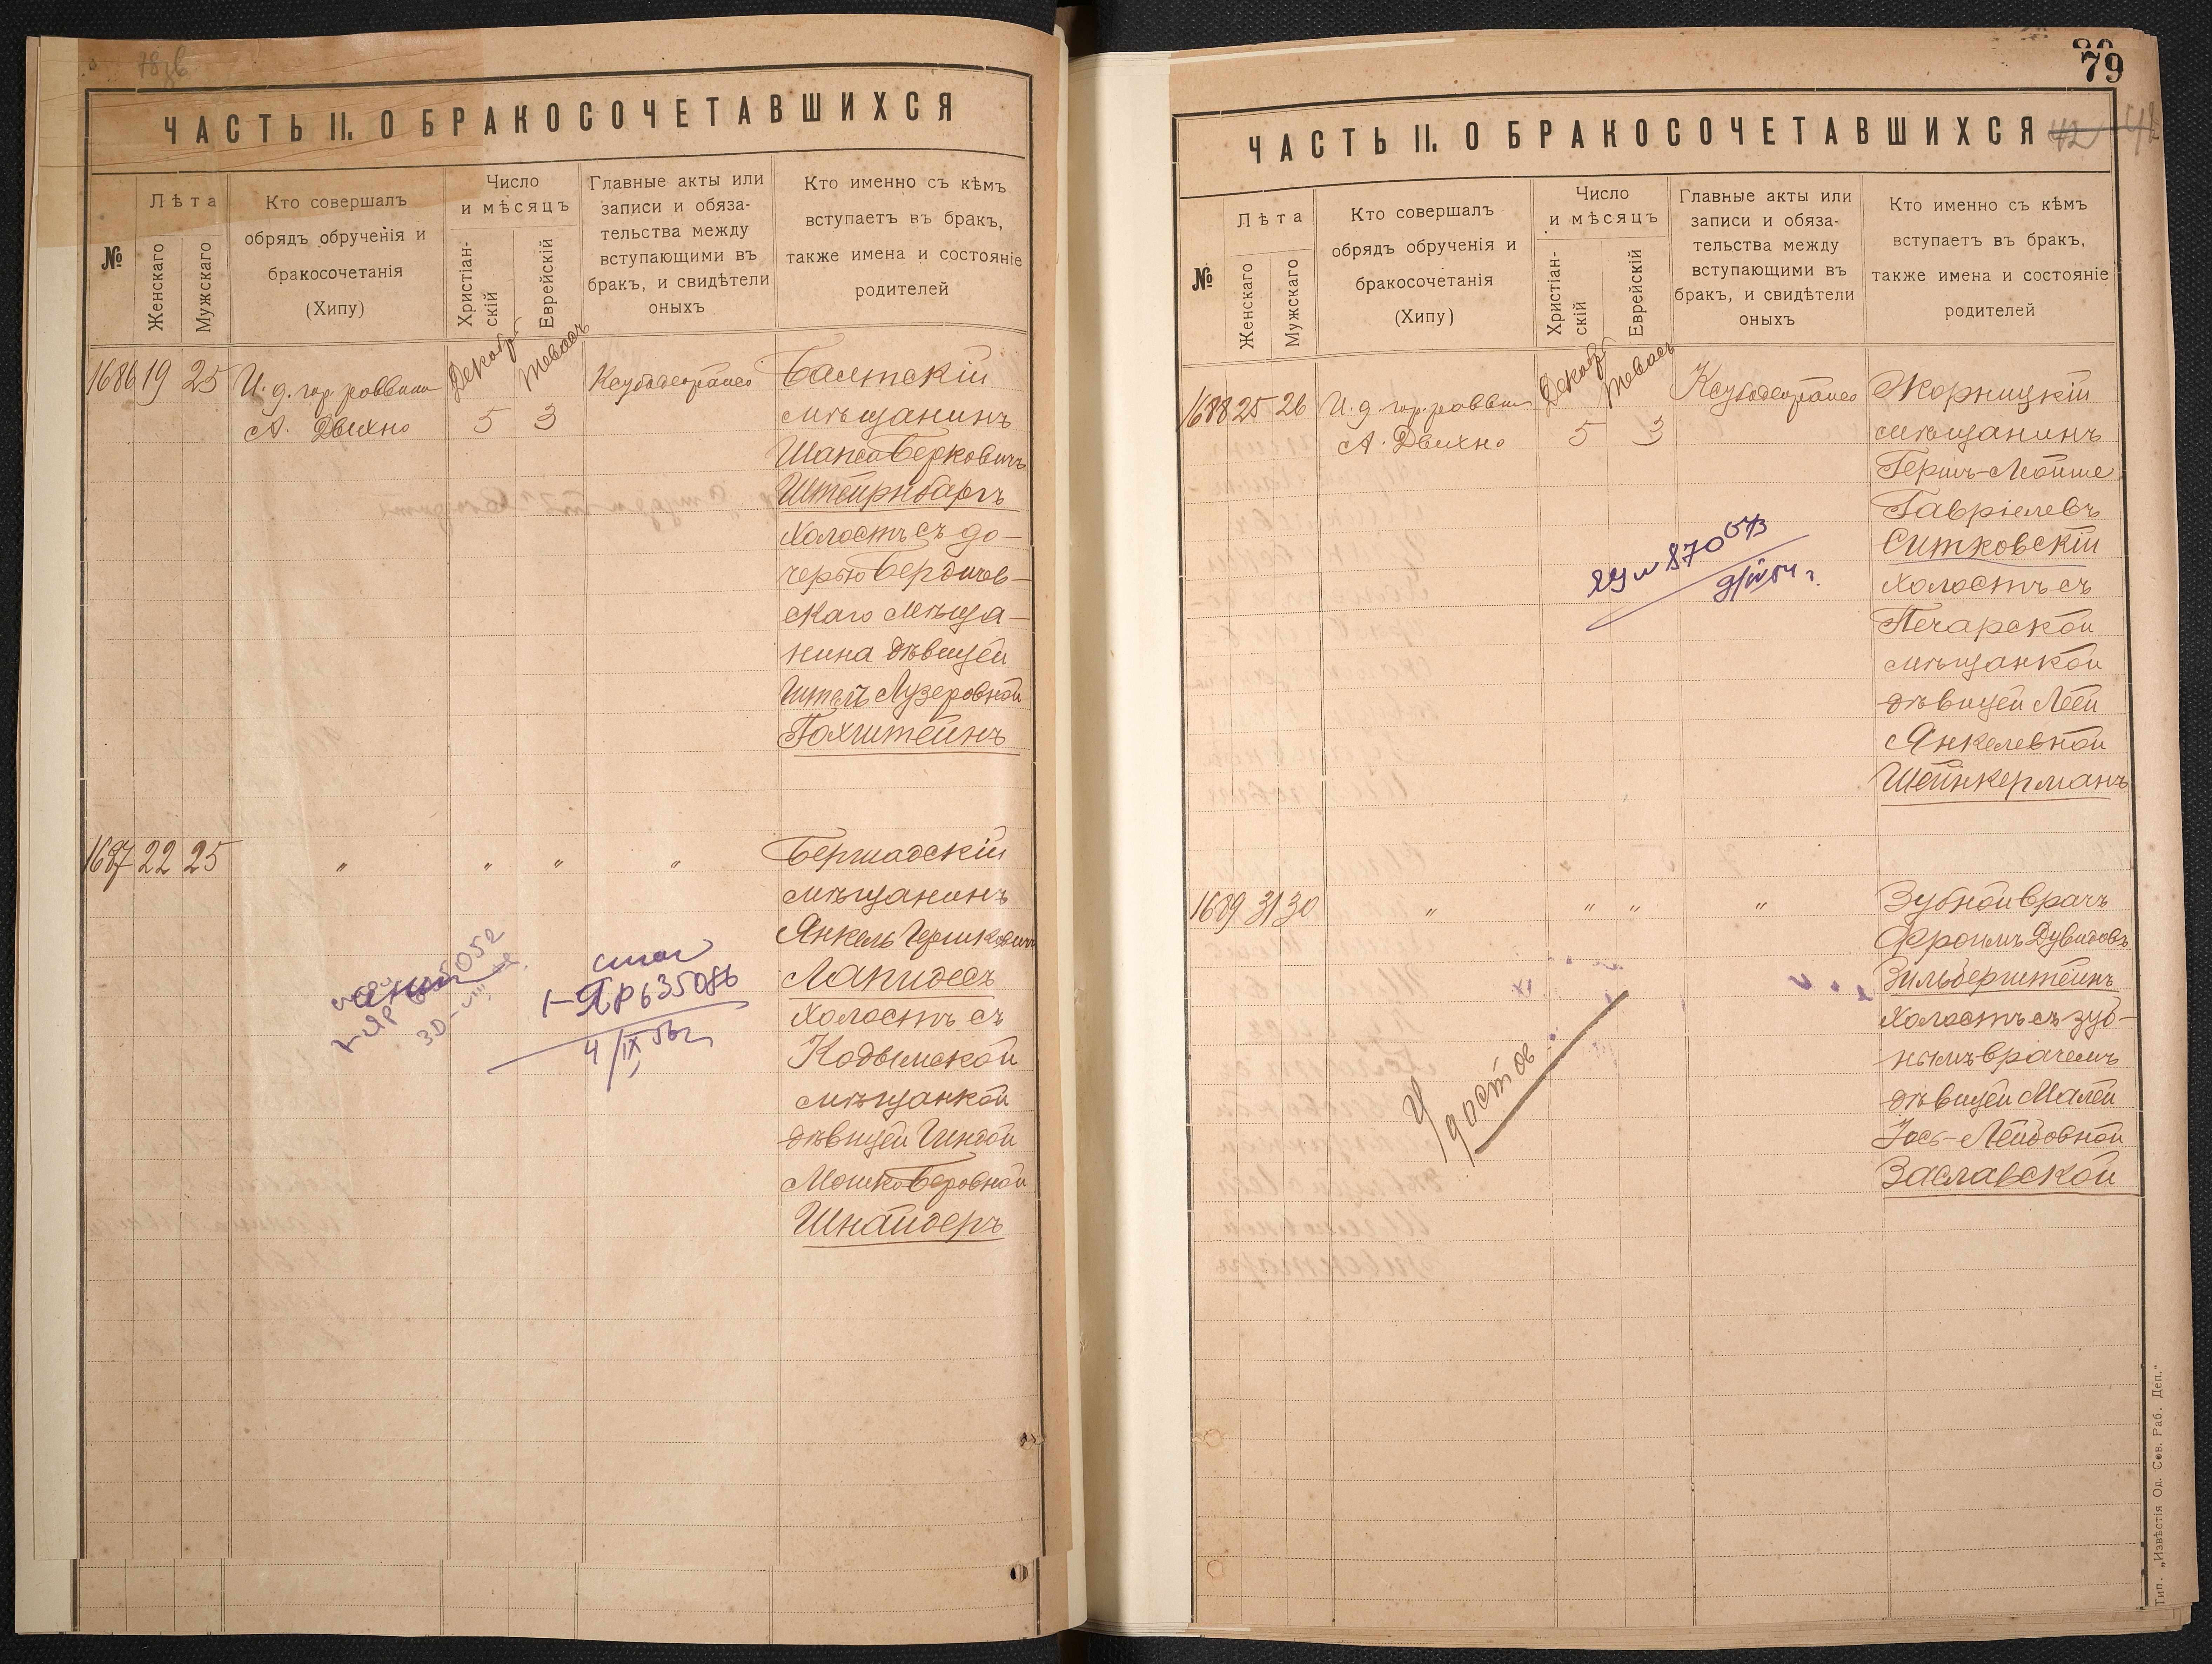 78 зв
ЧАСТЬ II. О БРАКОСОЧЕТАВШИХСЯ
№
Лѣта
Женскаго
Мужскаго
Кто совершалъ
обрядъ обрученія и
бракосочетанія
(Хипу)
Число
и мѣсяцъ
Христіан-
скій
Еврейскій
Главные акты или
записи и обяза-
тельства между
вступающими въ
бракъ, и свидѣтели
оныхъ
Кто именно съ кѣмъ
вступаетъ въ бракъ,
также имена и состояніе
родителей
1686 19 25
И. д. гор. раввина
А. Двихно
Декабрь
Тевасъ
5 3
Балтскій
мѣщанинъ
Шапса Берковичъ
Штейрнбаргъ
холостъ съ до-
черью Бердичев-
скаго мѣща-
нина дѣвицей
Лузеровной
Гохштейнъ
1687 22 25
" " " "
Бершадскій
мѣщанинъ
Янкель Гершковичъ
Лапидесъ
холостъ съ
Кодымской
мѣщанкой
дѣвицей
Мошко-Беровной
Шнайдеръ
1-ЯР 635086
4/IX 56г.
79
ЧАСТЬ II. О БРАКОСОЧЕТАВШИХСЯ
42
№
Лѣта
Женскаго
Мужскаго
Кто совершалъ
обрядъ обрученія и
бракосочетанія
(Хипу)
Число
и мѣсяцъ
Христіан-
скій
Еврейскій
Главные акты или
записи и обяза-
тельства между
вступающими въ
бракъ, и свидѣтели
оныхъ
Кто именно съ кѣмъ
вступаетъ въ бракъ,
также имена и состояніе
родителей
1688 25 26
И. д. гор. раввина
А. Двихно
Декабрь
Тевасъ
5 3
Жорницкій
мѣщанинъ
Герш-Мойше
Гавріелевъ
Ситковскій
холостъ съ
Печарской
мѣщанкой
дѣвицей Леей
Янкелевной
Шейнкерманъ
1689 31 30
" " " "
Зубной врачъ
Фроимъ Дувидовъ
Зильберштейнъ
холостъ съ зуб-
нымъ врачемъ
дѣвицей Малей
Іось-Лейбовной
Заславской
Удостов
Тип. „Извѣстія Од. Сов. Раб. Деп."